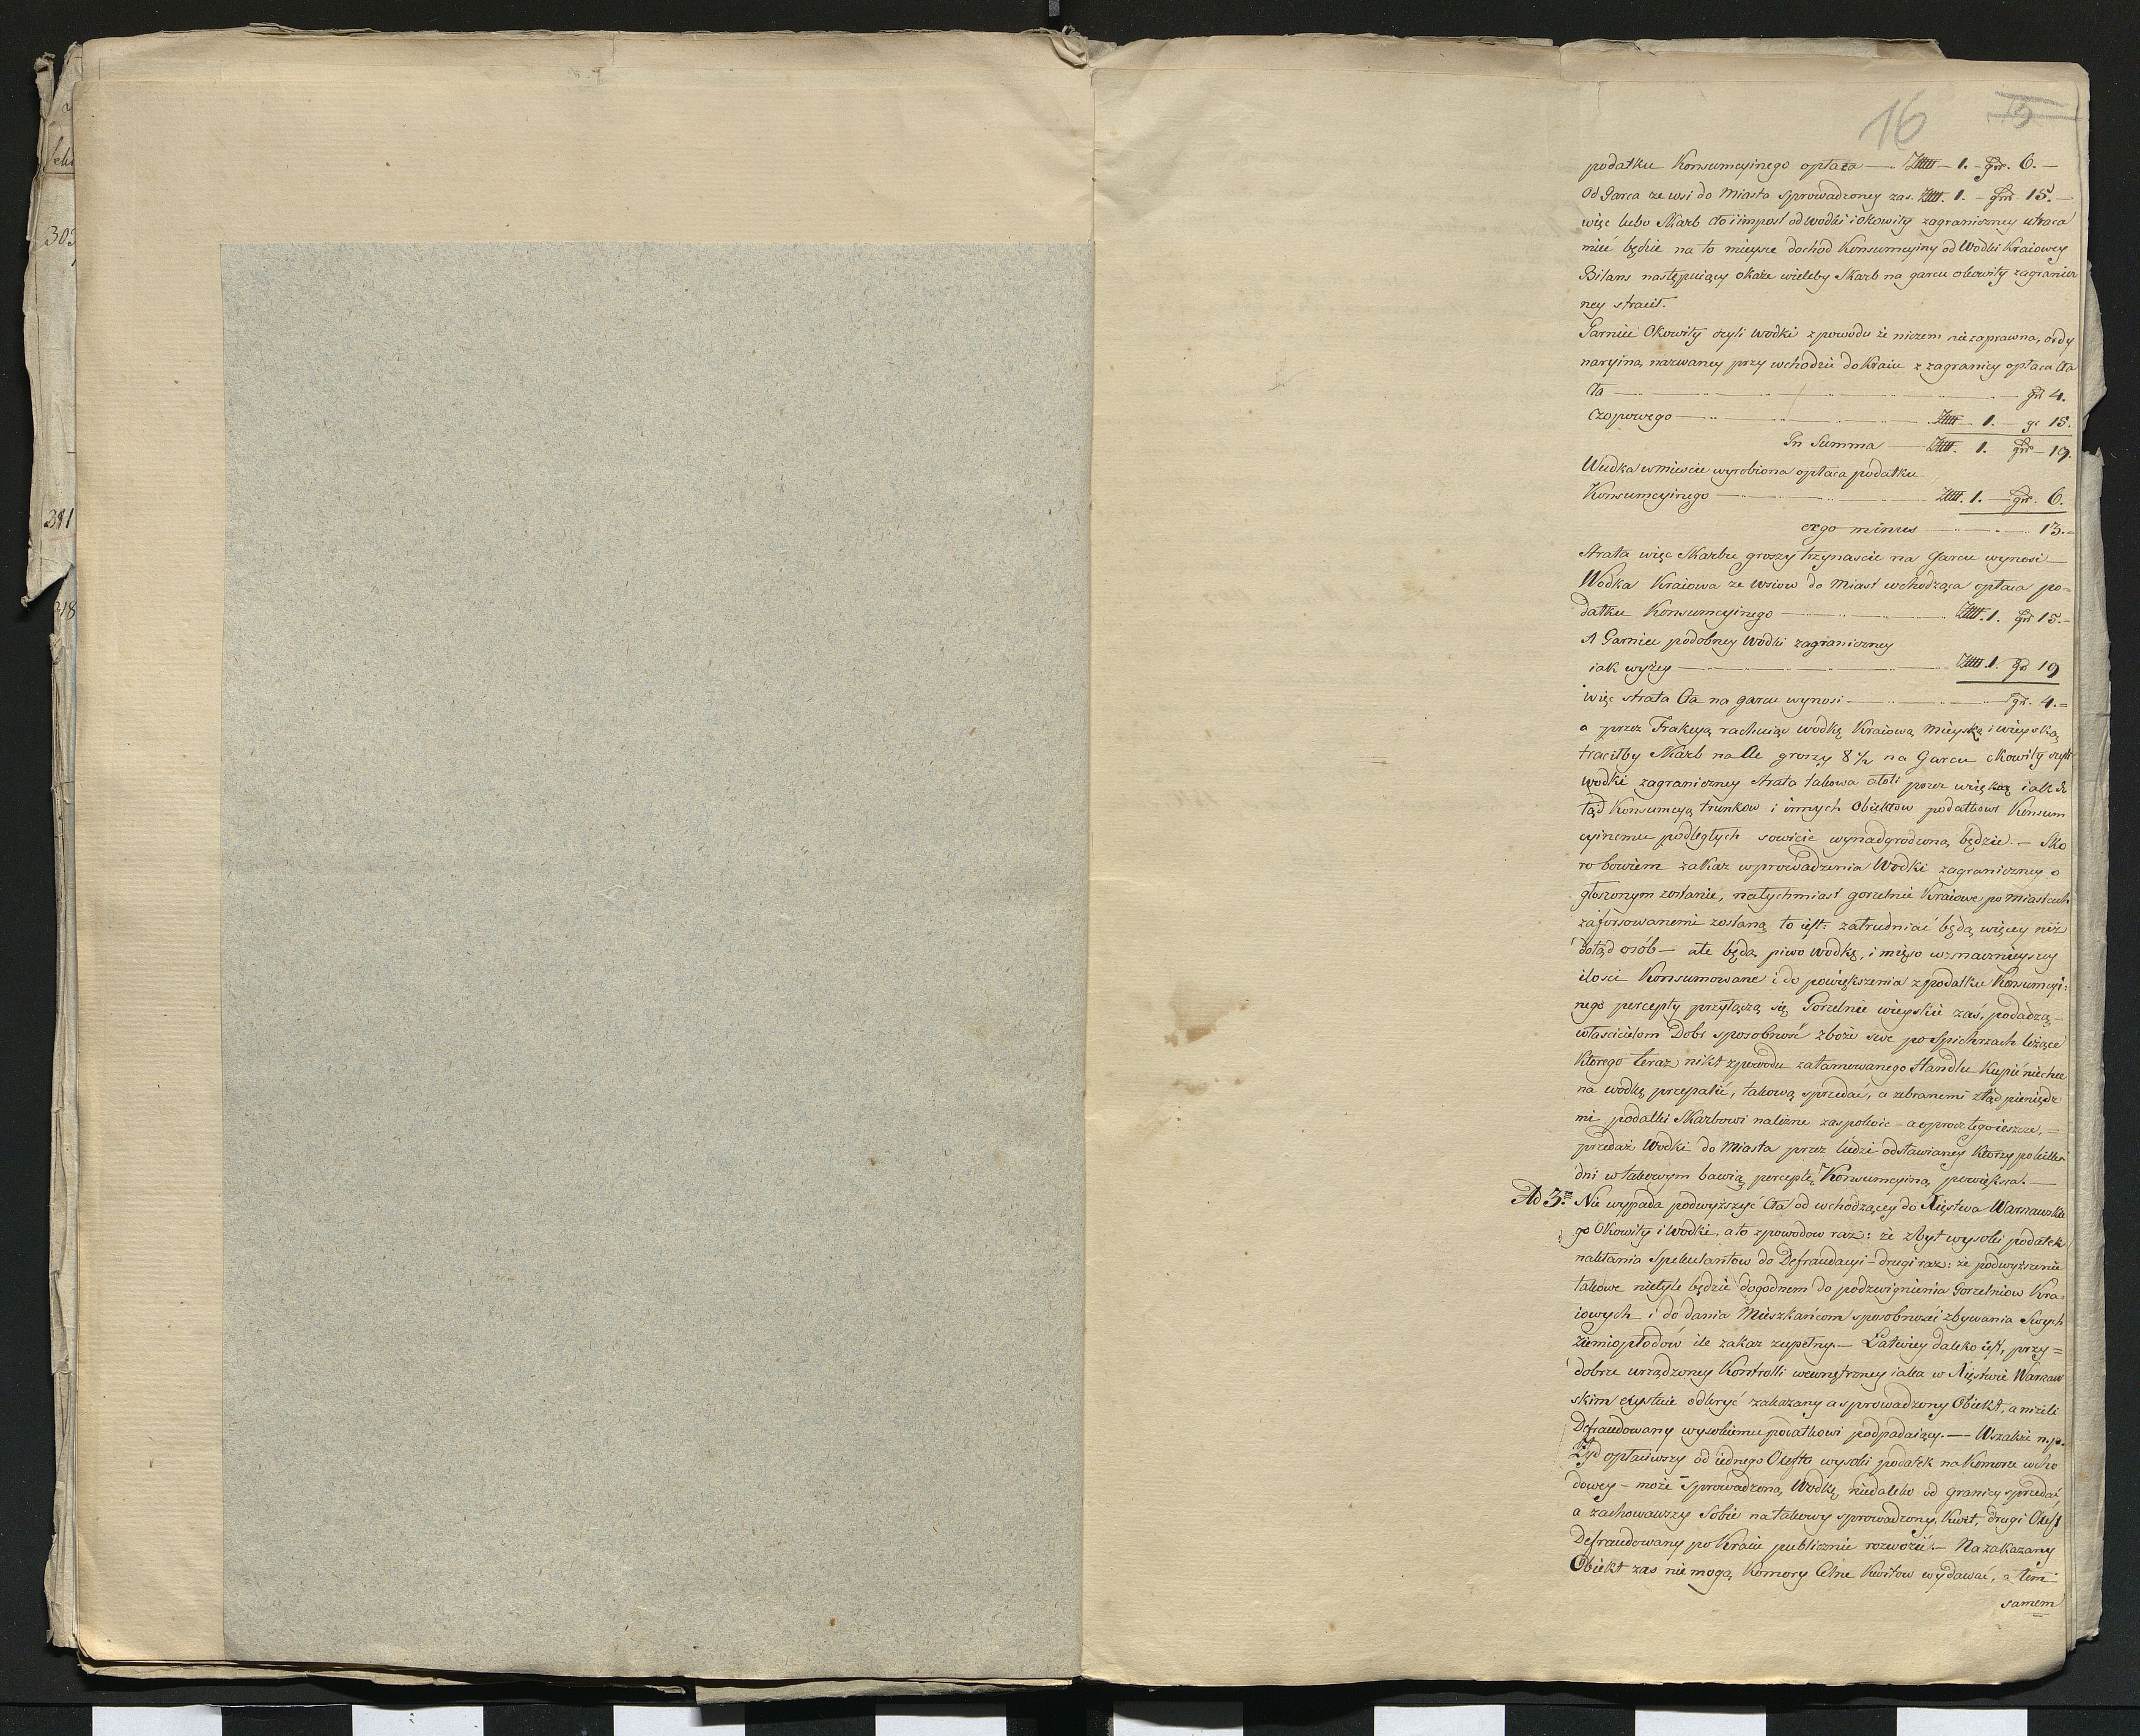 16
15
podatku Konsumcyinego opłaca — Złł — 1. — gr. 6. —
Od Garca ze wsi do Miasta sprowadzoney zas. Złł. 1. — gr. 15. —
więc lubo Skarb cło i impost od wodki i okowity zagraniczney utraca
mieć będzie na to mieysce dochod Konsumcyiny od Wodki Kraiowey
Bilans następuiący okaże wieleby Skarb na garcu okowity zagranicz
ney stracił.
Garniec Okowity czyli wodki z powodu że niczem niezaprawna, ordy
naryiną nazwaney przy wchodzie do Kraiu z zagranicy opłaca Cła
Cła — gr 4.
Czopowego — Złł — 1. — gr 15.
In Summa — Złł. 1. gr — 19.
Wudka w miescie wyrobiona opłaca podatku
Konsumcyinego — Złł. 1. — gr. 6.
ergo minus — 13. =
Strata więc Skarbu groszy trzynascie na Garcu wynosi —
Wódka Kraiowa ze wsiow do Miast wchodząca opłaca po=
datku Konsumcyinego — Złł. 1. gr 15. —
A Garniec podobney Wodki zagraniczney
iak wyżey — Złł. 1. gr 19
więc strata Cła na garcu wynosi — gr. 4. =
a przez Frakcyą rachuiąc wodkę Kraiową Mieyską i wieyską
traciłby Skarb na Cle groszy 8½ na Garcu okowity czyli
wodki zagraniczney strata takowa atoli przez większą iak do
tąd Konsumcyą trunkow i innych Obiektow podatkowi Konsum
cyinemu podległych sowicie wynadgrodzoną będzie. — Sko
ro bowiem zakaz wprowadzenia Wodki zagraniczney o
głoszonym zostanie, natychmiast gorzelnie Kraiowe po Miastach
zaforsowanemi zostaną to iest: zatrudniać będą więcey niż
dotąd osób — ale będą piwo wodkę, i mięso w znacznieyszey
ilosci Konsumowane i do powiększenia z podatku Konsumcyi=
nego percepty przyłączą się Gorzelnie wieyskie zaś, podadzą —
właścicielom Dobr sposobność zboże swe po Spichrzach leżące
Ktorego teraz nikt z powodu zatamowanego Handlu Kupić niechce
na wodkę przepalić, takową sprzedać, a zebranemi ztąd pieniędz
mi podatki Skarbowi należne zaspokoić — a oprocz tego ieszcze, =
przedaż Wodki do Miasta przez ludzi odstawianey Ktorzy po kilka
dni w takowym bawią perceptę Konsumcyiną powiększa. —
Ad 3m Nie wypada podwyższyć Cła od wchodzącey do Xięstwa Warszawskie
go Okowity i Wodki, a to z powodow raz: że zbyt wysoki podatek
nakłania Spekulantow do Defraudacyi — drugi raz: że podwyższenie
takowe nietyle będzie dogodnem do podzwignienia Gorzelniow Kra
iowych i do dania Mieszkańcom sposobności zbywania Swych
ziemiopłodów ile zakaz zupełny — Łatwiey daleko iest, przy =
dobrze urządzoney Kontrolli wewnętrzney iaka w Xięstwie Warszaw
skim exystuie odkryć zakazany a sprowadzony Obiekt, a niżeli
Defraudowany wysokiemu podatkowi podpadaiący. — Wszakże n. p.
Żyd opłaciwszy od iednego Oxefta wysoki podatek na Komorze wcho
dowey — może sprowadzoną Wodkę niedaleko od granicy sprzedać,
a zachowawszy Sobie na takowy sprowadzony Kwit, drugi Oxeft
Defraudowany po Kraiu publicznie rozwozić. — Na zakazany
Obiekt zas nie mogą Komory Celne Kwitow wydawać, a tem
samem